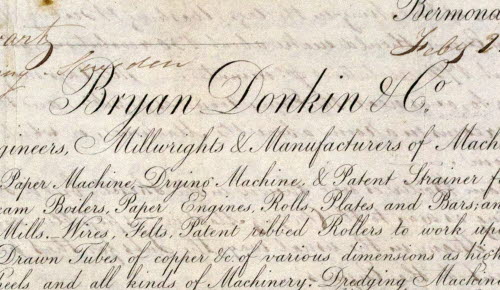 Bermond
July
Bryan Donkin & Co.
gineers, Millwrights & Manufacturers of Mach
Paper Machine, Drying Machine, & Patent Strainer f
eam Boilers, Paper Engines, Rolls, Plates and Bars; an
Mills. Wires, Felts, Patent ribbed Rollers to work up
Drawn Tubes of copper &c. of various dimensions as high
heels and all kinds of Machinery. Dredging Machin